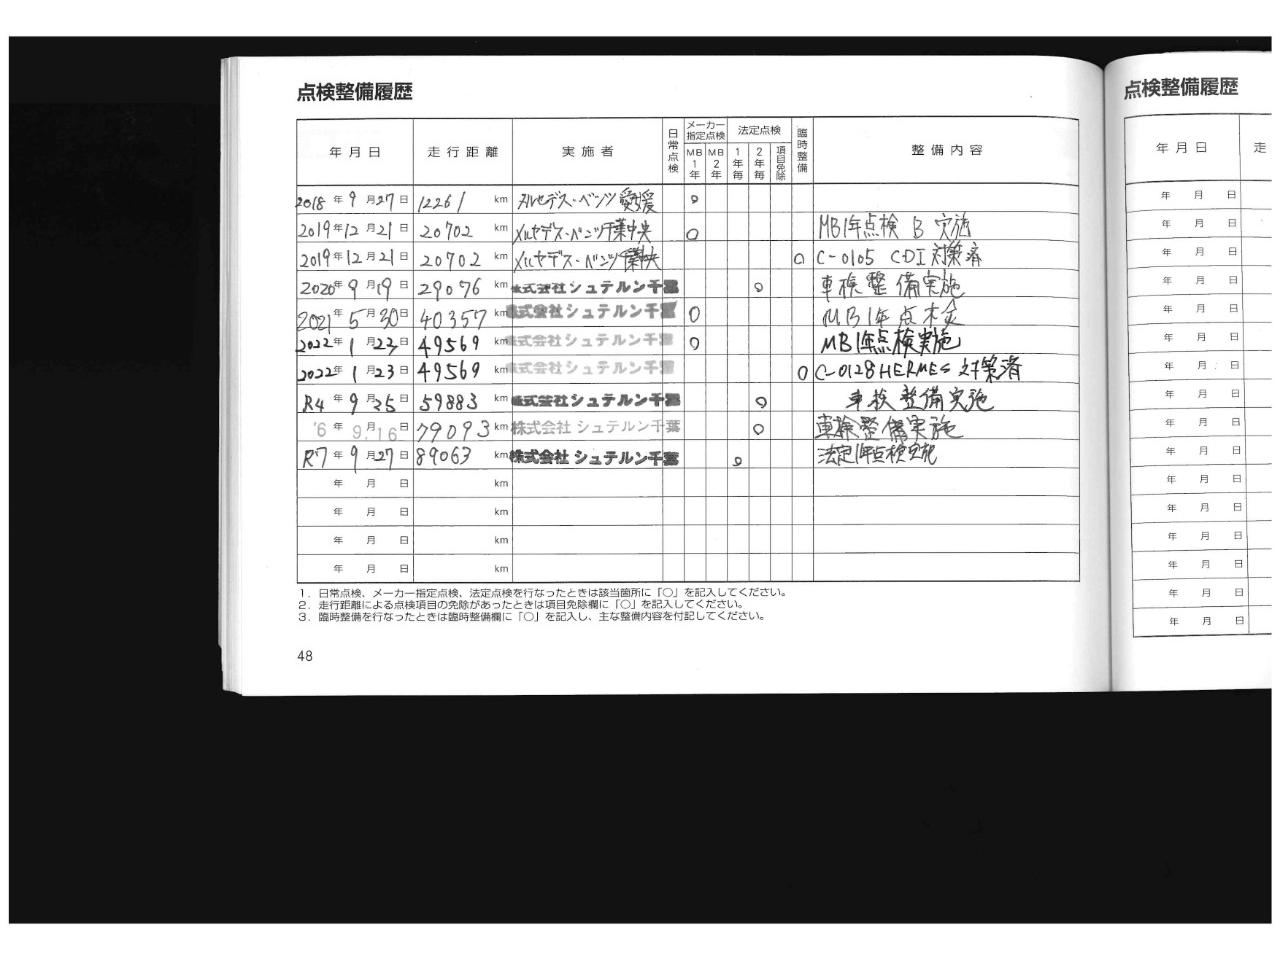 点検整備履歴
年月日 走行距離 実施者 日常点検 メーカー指定点検 MB1年 MB2年 法定点検 1年毎 2年毎 項目免除 臨時整備 整備内容
2018年9月27日 12261 km メルセデス・ベンツ愛媛 ○
2019年12月21日 20702 km メルセデス・ベンツ千葉中央 ○ MB1年点検 B 実施
2019年12月21日 20702 km メルセデス・ベンツ千葉中央 ○ C-0105 CDI対策済
2020年9月19日 29076 km 株式会社シュテルン千葉 ○ 車検整備実施
2021年5月30日 40357 km 株式会社シュテルン千葉 ○ MB1年点検
2022年1月23日 49569 km 株式会社シュテルン千葉 ○ MB1年点検実施
2022年1月23日 49569 km 株式会社シュテルン千葉 ○ C-0128 HERMES 対策済
R4年9月25日 59883 km 株式会社シュテルン千葉 ○ 車検整備実施
'6年9.月16日 79093 km 株式会社シュテルン千葉 ○ 車検整備実施
R7年9月27日 89063 km 株式会社シュテルン千葉 ○ 法定1年点検実施
年 月 日 km
年 月 日 km
年 月 日 km
年 月 日 km
1. 日常点検、メーカー指定点検、法定点検を行なったときは該当箇所に「○」を記入してください。
2. 走行距離による点検項目の免除があったときは項目免除欄に「○」を記入してください。
3. 臨時整備を行なったときは臨時整備欄に「○」を記入し、主な整備内容を付記してください。
48
点検整備履歴
年月日 走
年 月 日
年 月 日
年 月 日
年 月 日
年 月 日
年 月 日
年 月 日
年 月 日
年 月 日
年 月 日
年 月 日
年 月 日
年 月 日
年 月 日
年 月 日
年 月 日